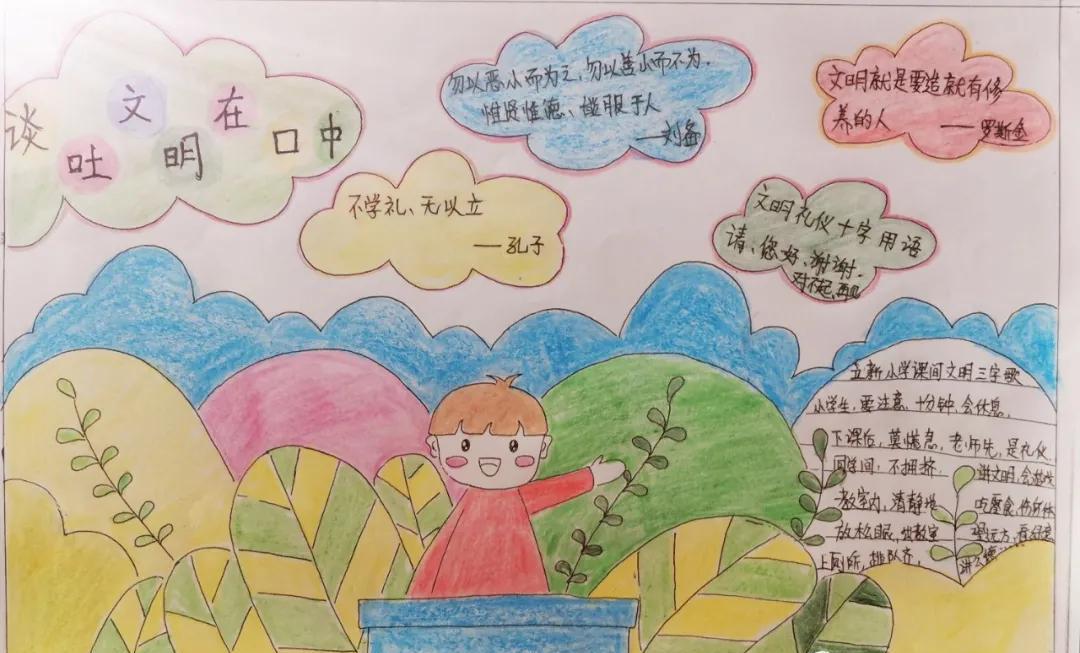 谈吐文明在口中
勿以恶小而为之,勿以善小而不为.
惟贤惟德、能服于人
—刘备
文明就是要造就有修
养的人 ——罗斯金
不学礼、无以立
——孔子
文明礼仪十字用语
请、您好、谢谢.
对不起、再见
立新小学课间文明三字歌
小学生,要注意,十分钟,会休息.
下课后,莫慌急,老师先,是礼仪
同学间,不拥挤. 讲文明,会游戏
教室内,清静地 吃零食,伤身体
放松眼,出教室 望远方
上厕所,排队齐. 讲公德